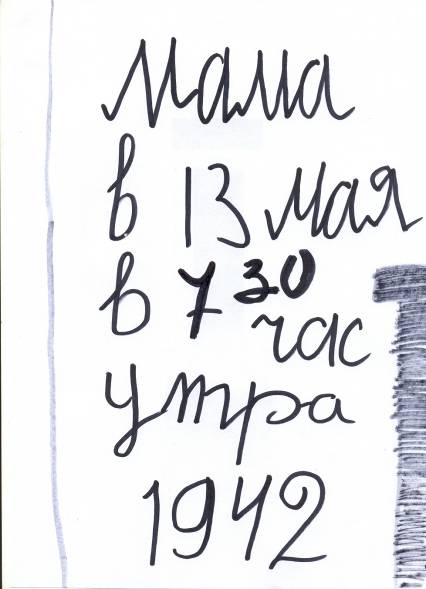 Мама
в 13 мая
в 7 30 час
утра
1942